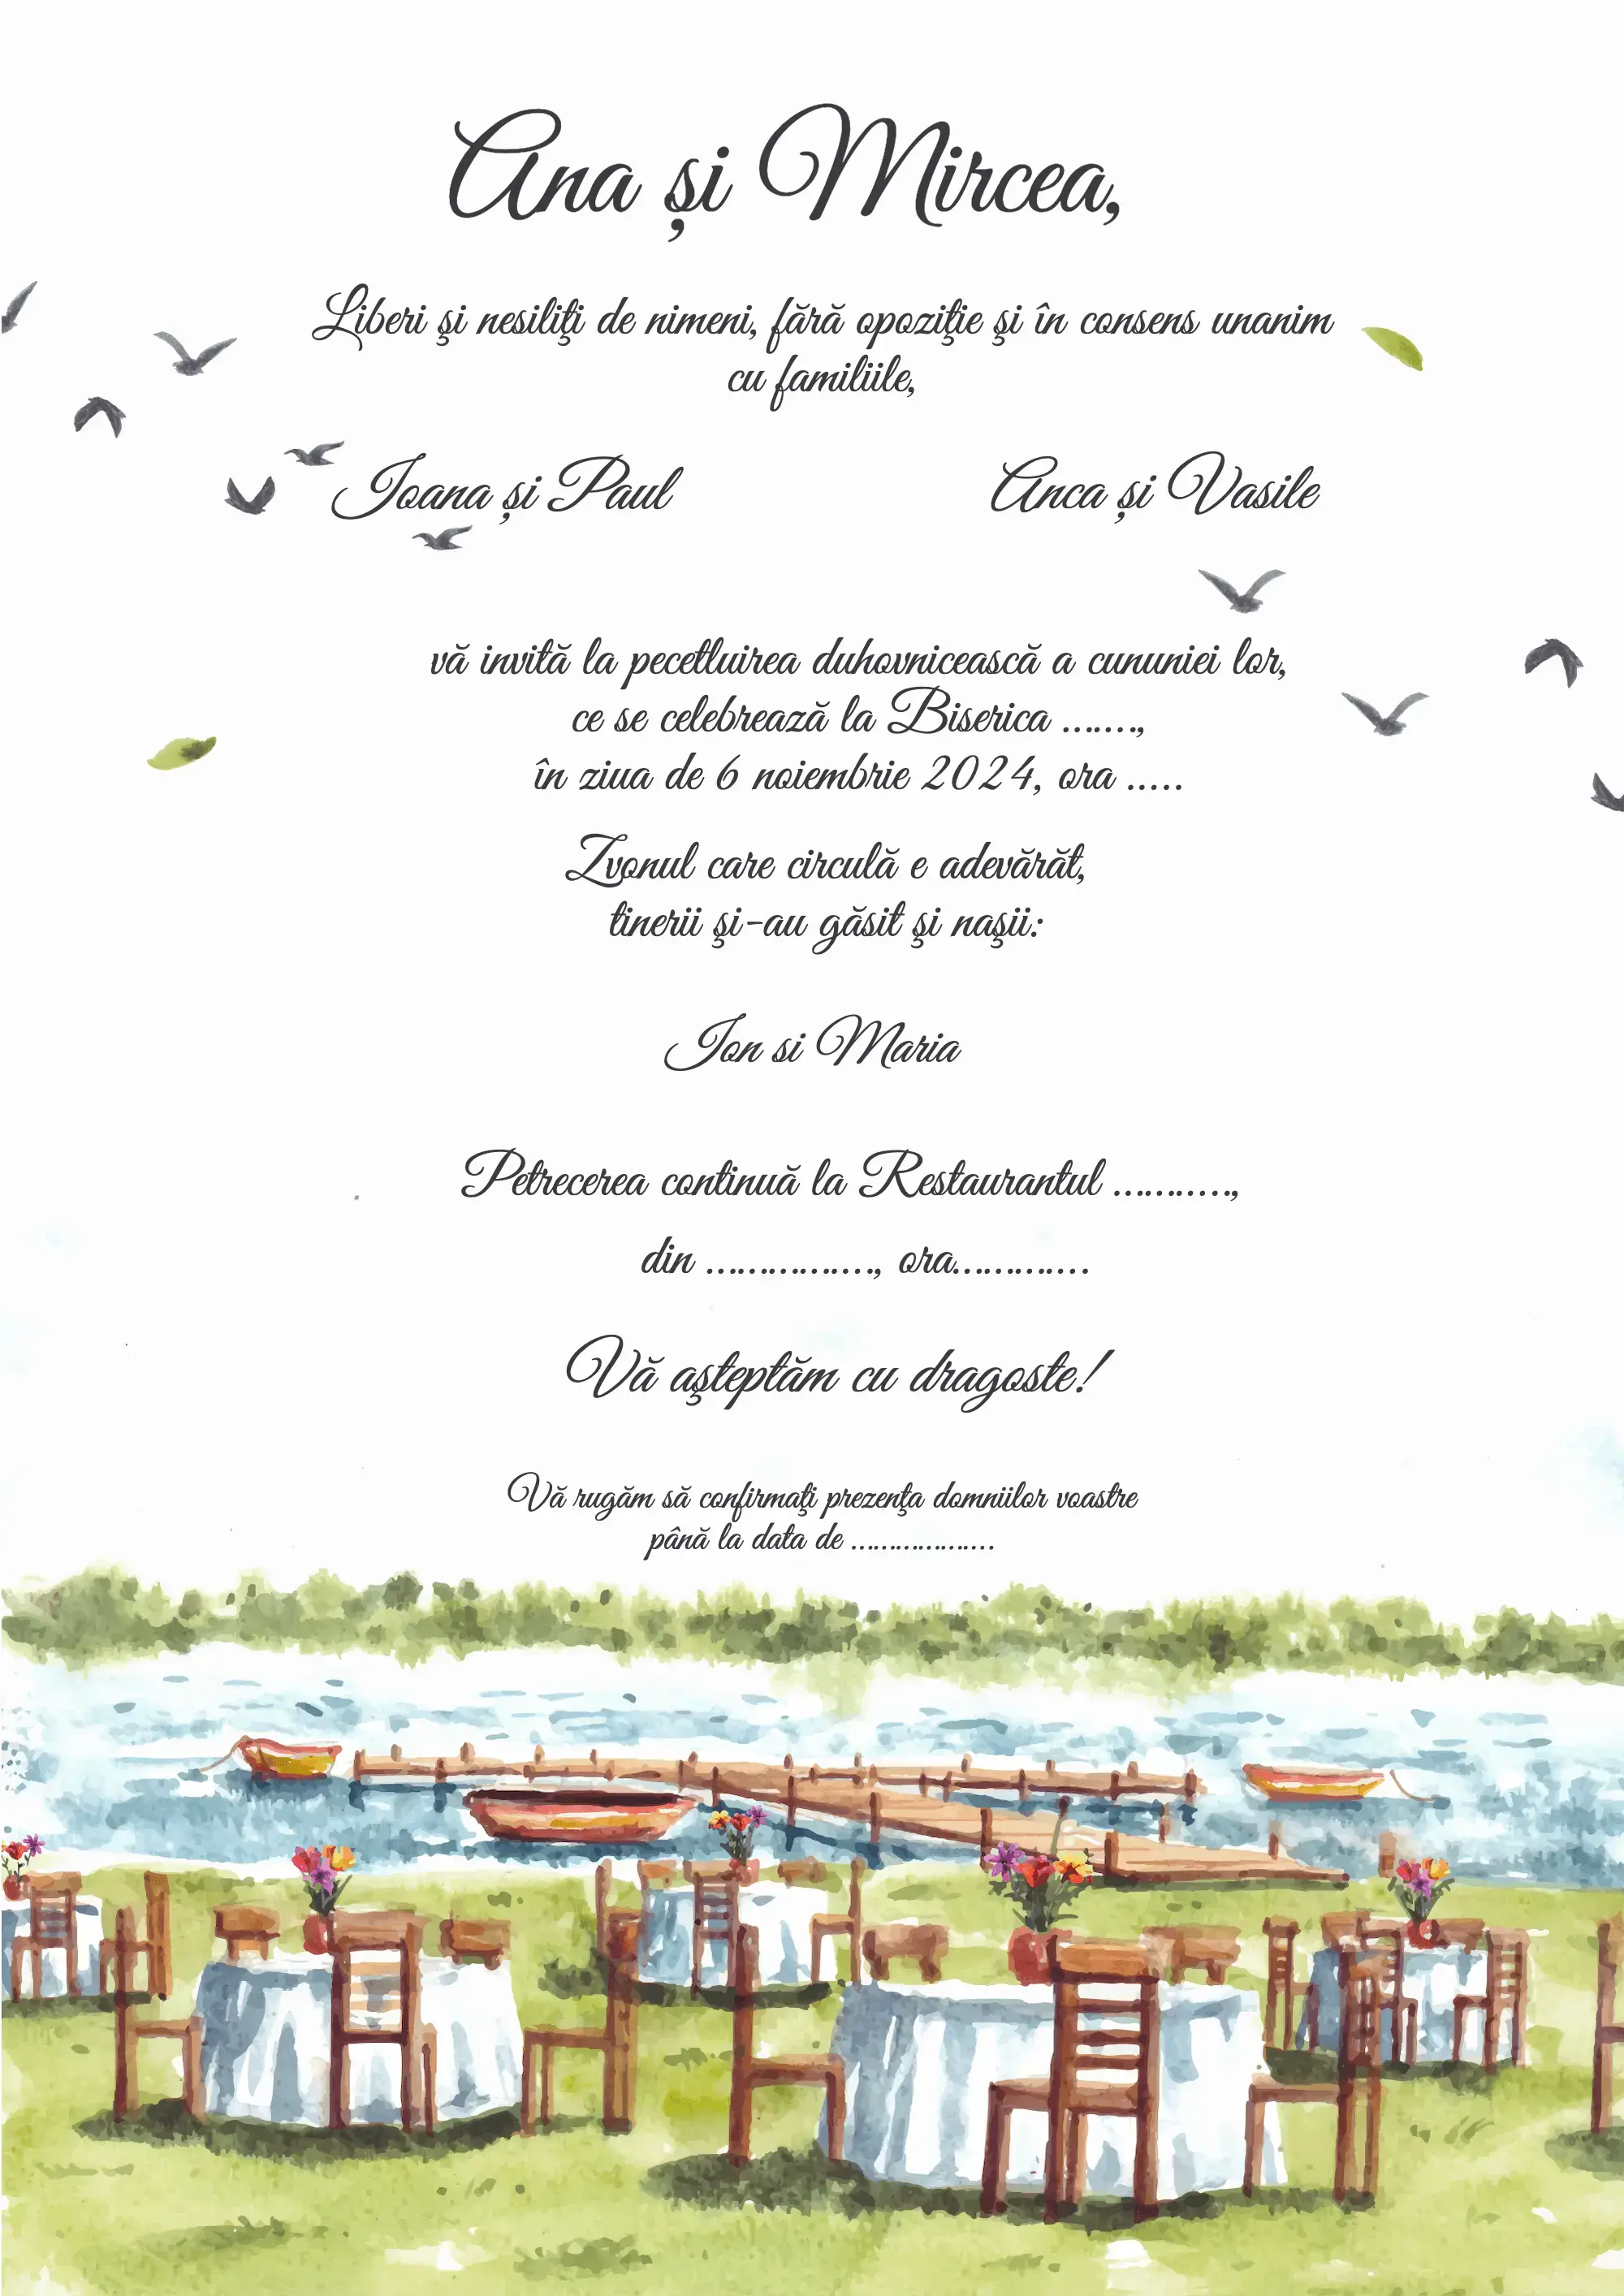 Ana și Mircea,
Liberi şi nesiliţi de nimeni, fără opoziţie şi în consens unanim
cu familiile,
Ioana și Paul
Anca și Vasile
vă invită la pecetluirea duhovnicească a cununiei lor,
ce se celebrează la Biserica .......,
în ziua de 6 noiembrie 2024, ora .....
Zvonul care circulă e adevărăt,
tinerii şi-au găsit şi naşii:
Ion si Maria
Petrecerea continuă la Restaurantul ...........,
din ................, ora............
Vă aşteptăm cu dragoste!
Vă rugăm să confirmaţi prezenţa domniilor voastre
până la data de ..................